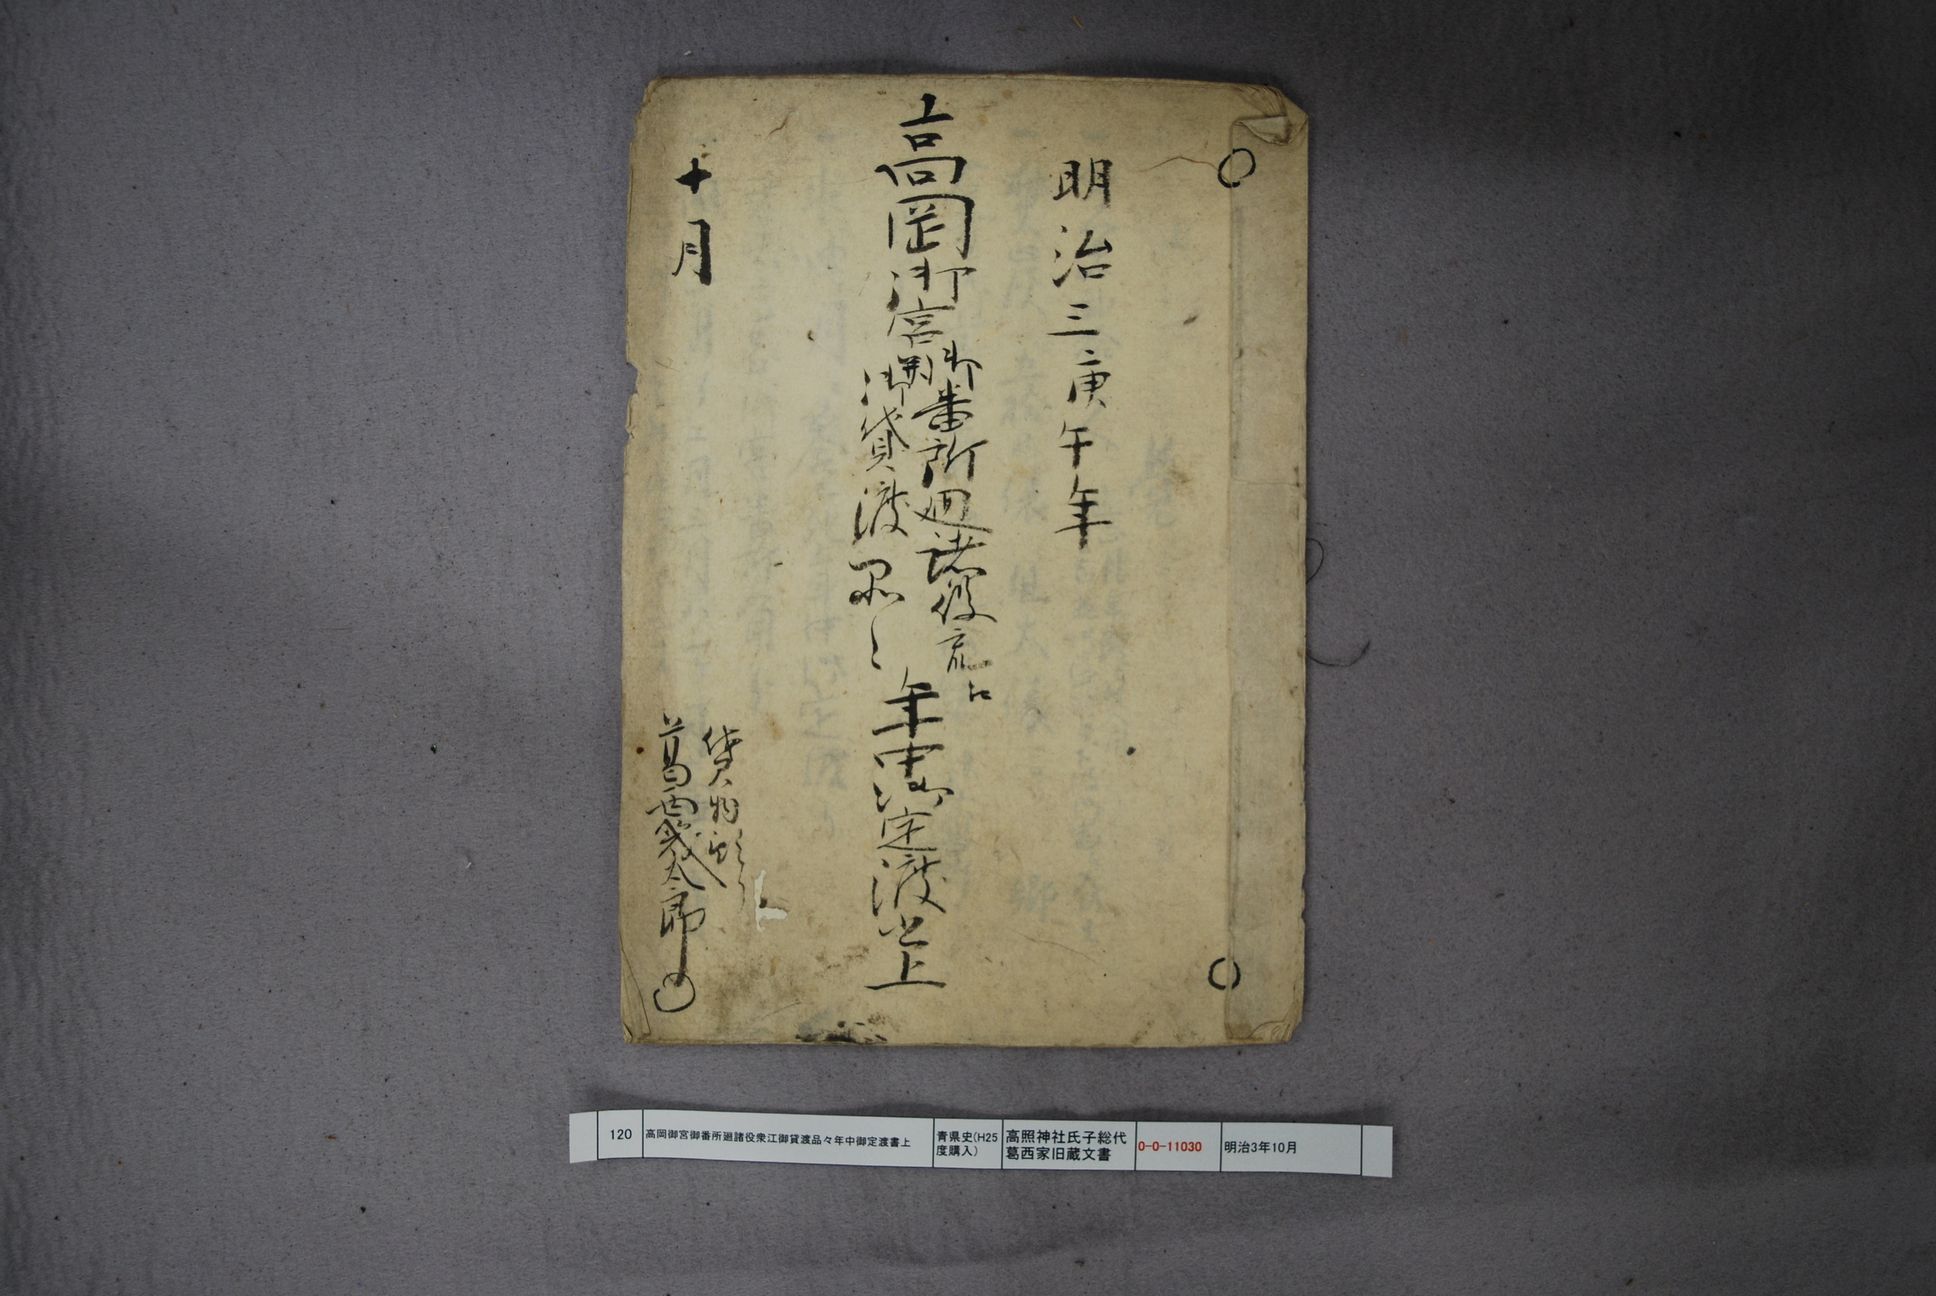 明治三庚午年
高岡御宮
御番所廻諸役衆江
御貸渡品々
年中御定渡書上
十月
貸物
葛西幾太郎
120
高岡御宮御番所廻諸役衆江御貸渡品々年中御定渡書上
青県史(H25
度購入)
高照神社氏子総代
葛西家旧蔵文書
0-0-11030
明治3年10月